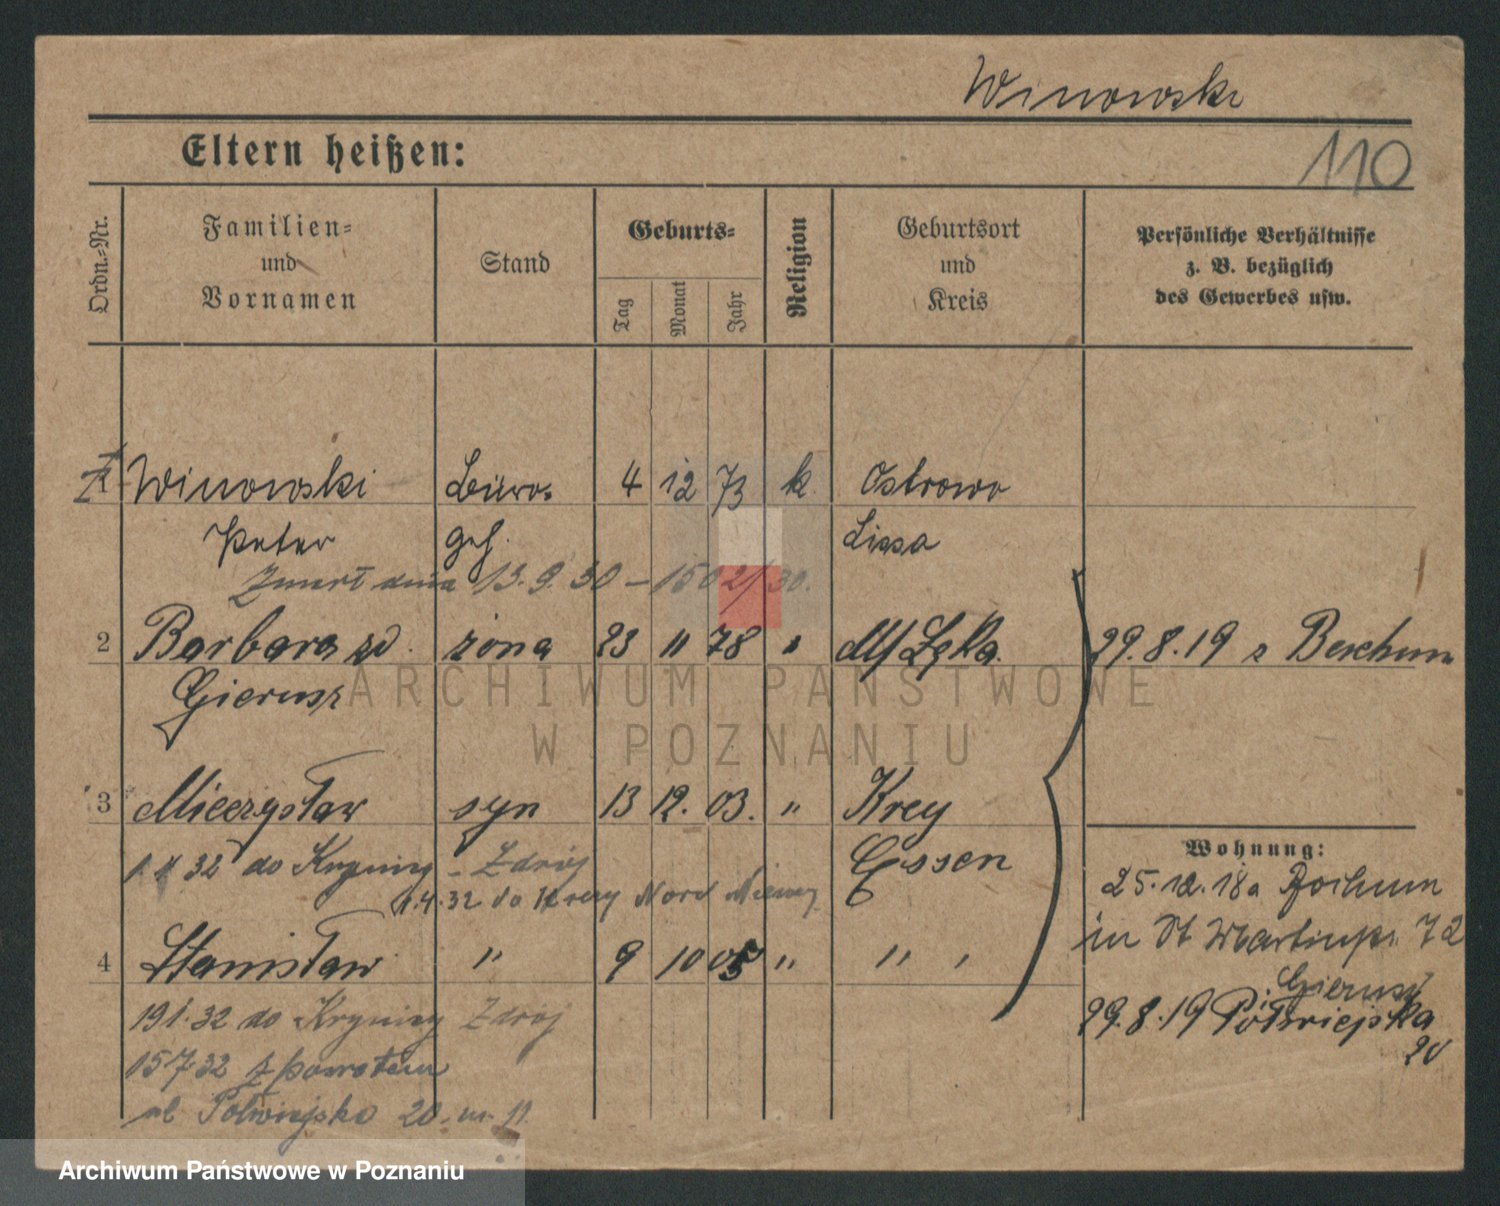 Winowski
110
Eltern heißen:
Ordn.-Nr.
Familien-
und
Vornamen
Stand
Geburts-
Tag
Monat
Jahr
Religion
Geburtsort
und
Kreis
Persönliche Verhältnisse
z. B. bezüglich
des Gewerbes usw.
1 Winowski Büro- 4 12 73 k. Ostrowo
Peter geh. Lissa
Zmarł dnia 13.9.30 – 1502/30.
2 Barbara zd. żona 23 " 78 " Łęka 29.8.19 z Bochum
Gierusz
3 Mieczysław syn 13 12. 03. " Krey
Essen
1.1 32 do Krynicy – Zdrój
1.4.32 do Krey Nord
4 Stanisław " 9 10 05 " " "
191.32 do Krynicy Zdrój
157.32 z powrotem
ul Półwiejska 20. m. 11.
Wohnung:
25.12.18 a Bochum
in St Martinstr. 72
i. Gierusz
29.8.19 Półwiejska
20
ARCHIWUM PAŃSTWOWE
W POZNANIU
Archiwum Państwowe w Poznaniu